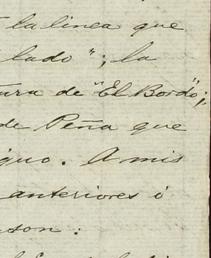 la linea que
lado"; la
ura de "El Bordo";
de Peña que
guo. A mis
anteriores ó
son: